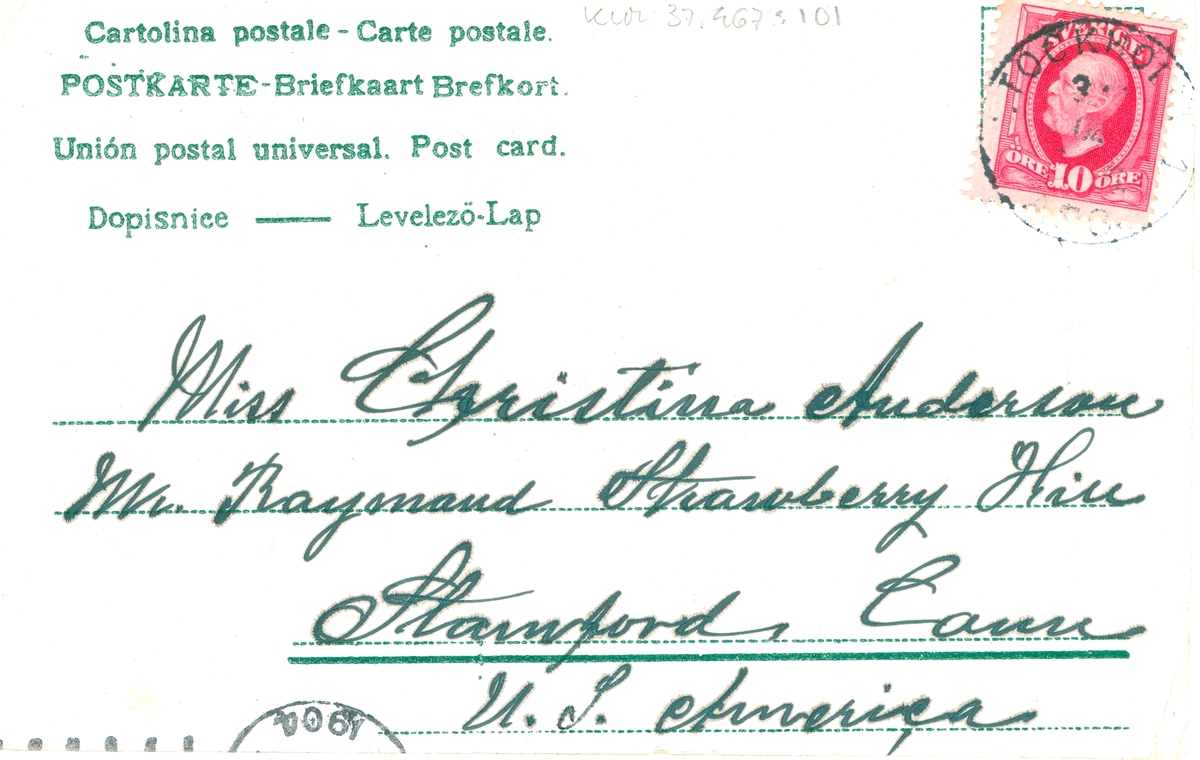 KLM 37.467:101
Cartolina postale - Carte postale.
POSTKARTE - Briefkaart Brefkort.
Unión postal universal. Post card.
Dopisnice — Levelező-Lap
SVERIGE
ÖRE 10 ÖRE
Miss Christina Anderson
Mr. Raymand Strawberry Hill
Stamford, Conn
U. S. America.